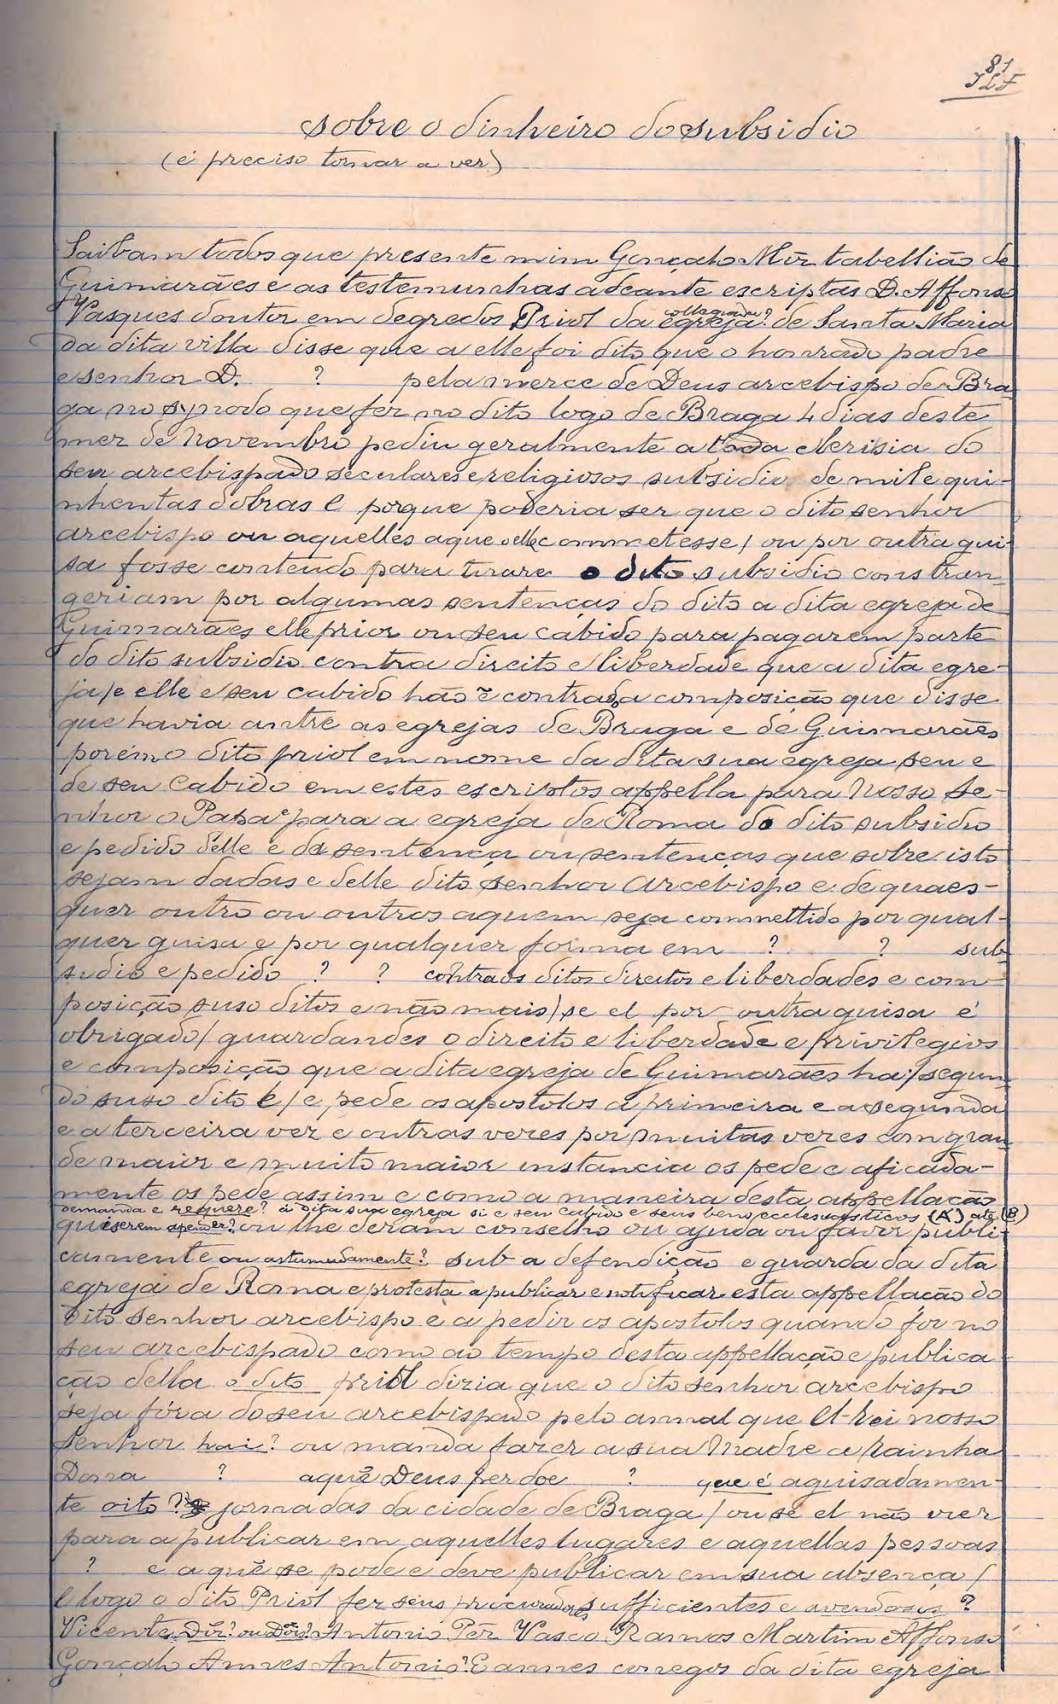 81
sobre o dinheiro do subsidio
(é preciso tornar a ver)
Saibam todos que presente mim Gonçalo Miz tabellião de
Guimarães e as testemunhas adeante escriptas D. Affonso
Vasques doutor em degredos Priol da egreja? de Santa Maria
collegiada?
da dita villa disse que a elle foi dito que o honrado padre
e senhor D. ? pela merce de Deus arcebispo de Bra
ga no synodo que fez no dito logo de Braga 4 dias deste
mez de Novembro pediu geralmente a toda clerisia do
seu arcebispado seculares e religiosos subsidio de mil e qui-
nhentas dobras E porque poderia ser que o dito senhor
arcebispo ou aquelles a que o elle commetesse / ou por outra gui-
sa fosse conteudo para tirare o dito subsidio constran-
geriam por algumas sentenças do dito a dita egreja de
Guimarães elle prior ou seu cabido para pagarem parte
do dito subsidio contra direito e liberdade que a dita egre-
ja / e elle e seu cabido hão e contra a composição que disse
que havia antre as egrejas de Braga e de Guimarães
porém o dito priol em nome da dita sua egreja seu e
de seu Cabido em estes escriptos appella para Nosso Se-
nhor o Papa e para a egreja de Roma do dito subsidio
e pedido delle e da sentença ou sentenças que sobre isto
sejam dadas e delle dito senhor Arcebispo e de quaes-
quer outro ou outros a quem seja commettido por qual-
quer guisa e por qualquer forma em ? ? sub
sidio e pedido ? ? contra os ditos direitos e liberdades e com-
posição suso ditos e não mais / se el por outra guisa é
obrigado / guardandos o direito e liberdade e privilegios
e composição que a dita egreja de Guimarães ha / segun-
do suso dito é / e pede os apostolos a primeira e a segunda
e a terceira vez e outras vezes por muitas vezes com gran-
de maior e muito maior instancia os pede e aficada-
mente os pede assim e como a maneira desta appellação
demanda e requere? á dita sua egreja si e seu cabido e seus bens ecclesiasticos (A) até (B)
quiserem apender? ou lhe deram conselho ou ajuda ou favor publi-
camente ou astumadamente? sub a defendição e guarda da dita
egreja de Roma e protesta a publicar e notificar esta appellação do
dito senhor arcebispo e a pedir os apostolos quando for no
seu arcebispado como ao tempo desta appellação e publica
ção della o dito priol dizia que o dito senhor arcebispo
seja fóra do seu arcebispado pelo annal que El-rei nosso
Senhor hai? ou manda fazer a sua Madre a rainha
Dona ? a que Deus perdoe ? que é aguisadamen-
te oito ? jornadas da cidade de Braga / ou se el não vier
para a publicar em aquelles lugares e aquellas pessoas
? e a que se pode e deve publicar em sua absença /
E logo o dito Priol fez seus procuradores sufficientes e avondosos ?
Vicente Diz? ou Dõis? Antonio Pêr Vasco Ramos Martim Affonso
Gonçalo Annes Antonio? Eannes conegos da dita egreja